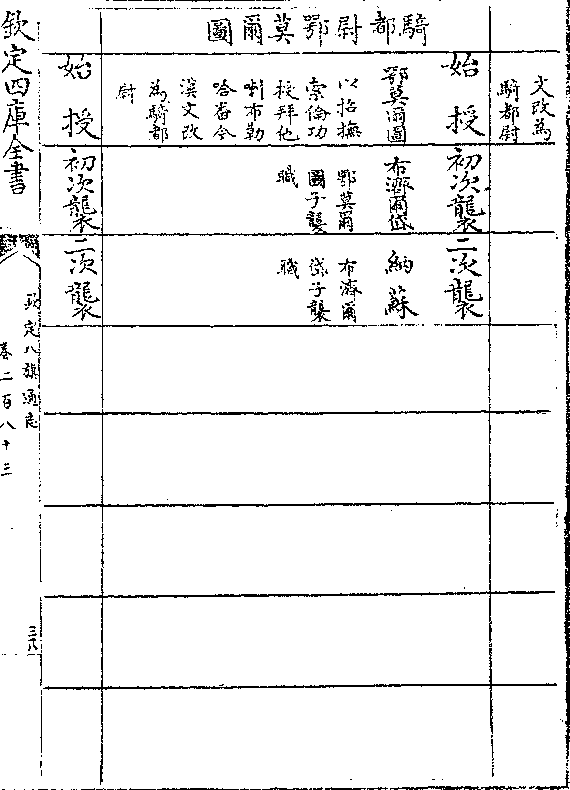 文改為
騎都尉
騎都尉鄂莫爾圖
始授
初次襲
二次襲
鄂莫爾圖
以招撫
索倫功
授拜他
喇布勒
哈番今
漢文改
為騎都
尉
布濟爾岱
鄂莫爾
圖子襲
職
納蘇
布濟爾
岱子襲
職
始授
初次襲
二次襲
欽定四庫全書
欽定八旗通志
卷二百八十三